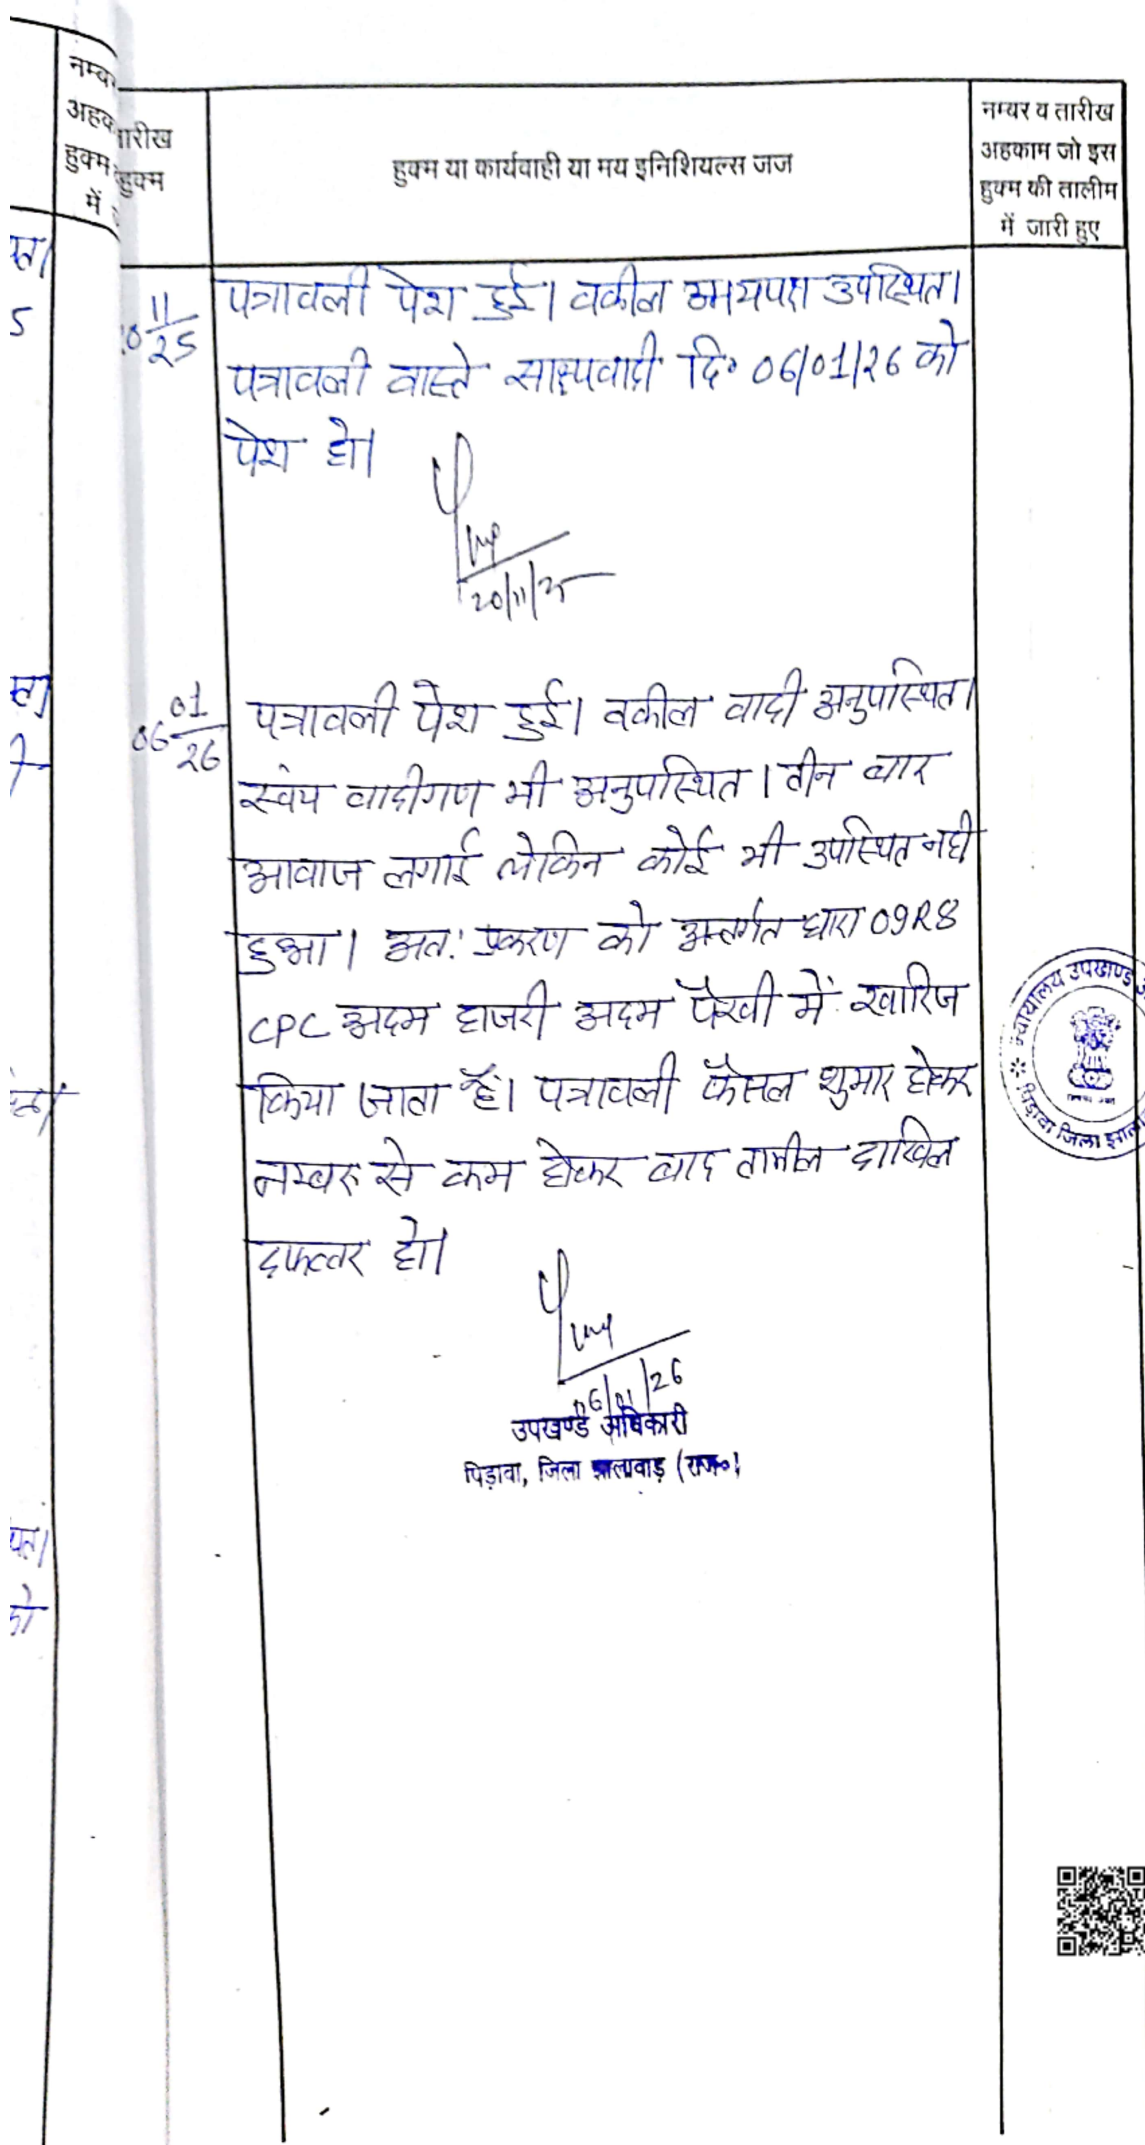 नम्बर
अहव
हुक्म
में
तारीख
हुक्म
हुक्म या कार्यवाही या मय इनिशियल्स जज
नम्बर व तारीख
अहकाम जो इस
हुक्म की तालीम
में जारी हुए
11
25
पत्रावली पेश हुई। वकील उभयपक्ष उपस्थित।
पत्रावली वास्ते साक्ष्यवादी दि० 06/01/26 को
पेश हो।
20/11/25
06 01
26
पत्रावली पेश हुई। वकील वादी अनुपस्थित।
स्वंय वादीगण भी अनुपस्थित। तीन बार
आवाज लगाई लेकिन कोई भी उपस्थित नही
हुआ। अत: प्रकरण को अन्तर्गत धारा 09R8
CPC अदम हाजरी अदम पैरवी में खारिज
किया जाता है। पत्रावली फैसल शुमार होकर
नम्बर से कम होकर बाद तामील दाखिल
दफ्तर हो।
06/01/26
उपखण्ड अधिकारी
पिड़ावा, जिला झालावाड़ (राज०)
न्यायालय उपखण्ड
पिड़ावा जिला झाला